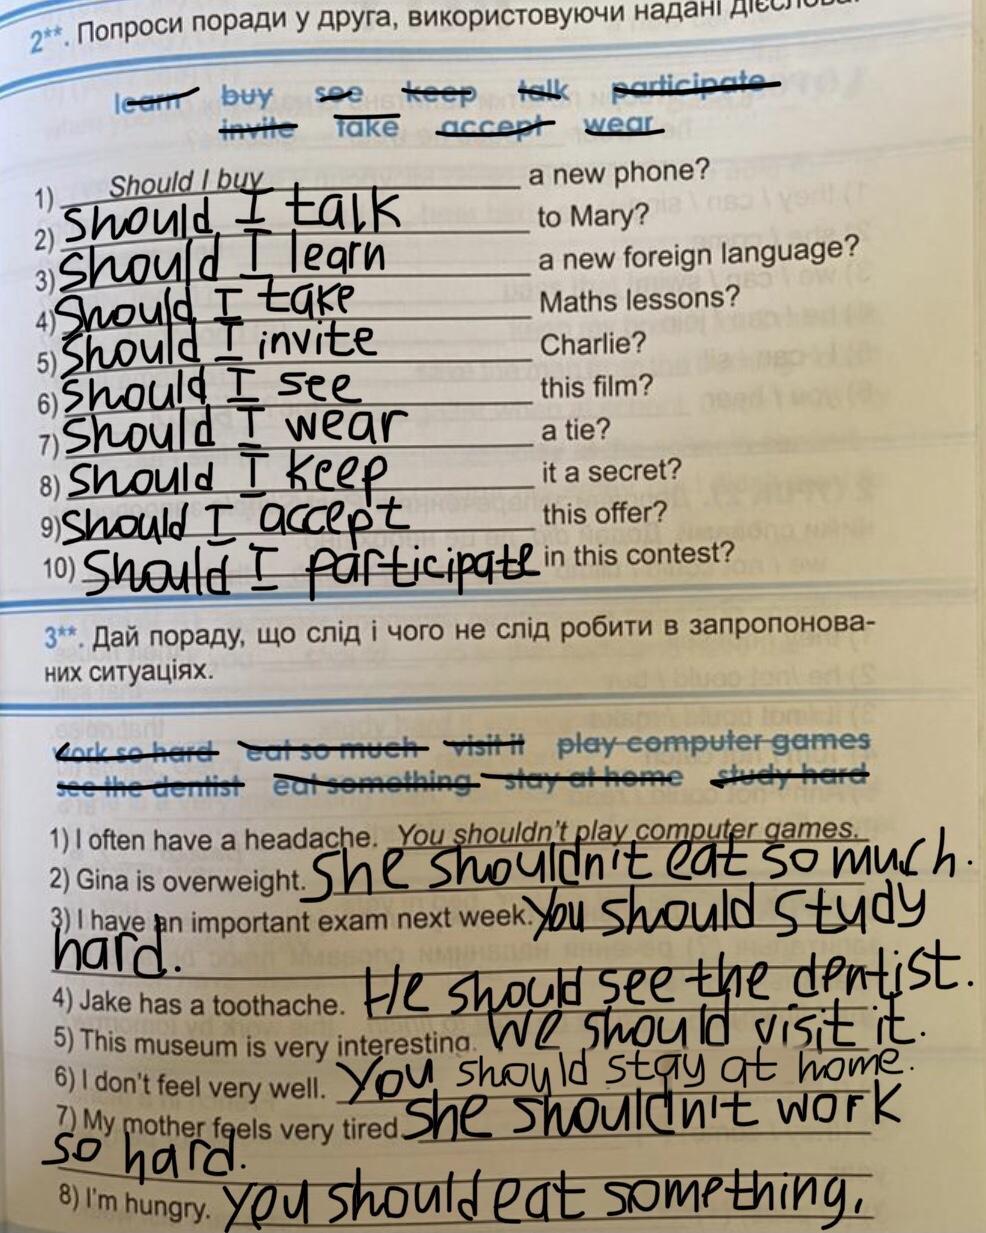 2**. Попроси поради у друга, використовуючи надані
learn buy see keep talk participate
invite take accept wear
1) Should I buy a new phone?
2) Should I talk to Mary?
3) Should I learn a new foreign language?
4) Should I take Maths lessons?
5) Should I invite Charlie?
6) Should I see this film?
7) Should I wear a tie?
8) Should I keep it a secret?
9) Should I accept this offer?
10) Should I participate in this contest?
3**. Дай пораду, що слід і чого не слід робити в запропонова-
них ситуаціях.
work so hard eat so much visit it play computer games
see the dentist eat something stay at home study hard
1) I often have a headache. You shouldn't play computer games.
2) Gina is overweight. She shouldn't eat so much.
3) I have an important exam next week. You should study
hard.
4) Jake has a toothache. He should see the dentist.
5) This museum is very interesting. We should visit it.
6) I don't feel very well. You should stay at home.
7) My mother feels very tired. She shouldn't work
so hard.
8) I'm hungry. you should eat something.